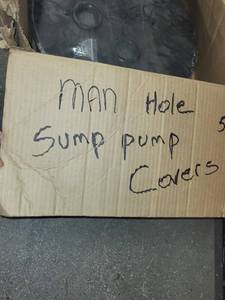 MAN Hole
Sump pump 5
Covers